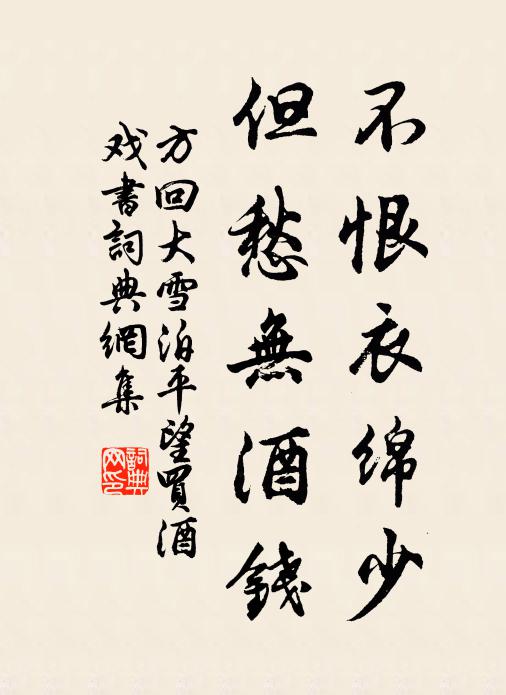 不恨衣绵少
但愁無酒錢
方回大雪泊平望買酒
戏書詞典網集
詞典网印